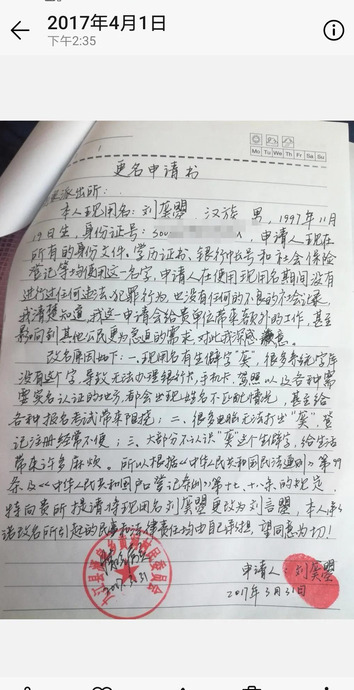 2017年4月1日
下午2:35
Mo Tu We Th Fr Sa Su
更名申请书
派出所:
本人现用名:刘 曌,汉族,男,1997年11月
19日生,身份证号:500,申请人现在
所有的身份文件、学历证书、银行帐号和社会保险
登记等均使用这一名字,申请人在使用现用名期间没有
进行过任何违法犯罪行为,也没有任何的不良的社会记录,
我清楚知道,我这一申请会给贵单位带来额外的工作,甚至
影响到其他公民更为急迫的需求,对此我深感
改名原因如下:一、现用名有生僻字“”,很多系统字库
没有这个字,导致无法办理银行卡,手机卡,驾照以及各种需
要实名认证的地方,都会出现姓名不匹配情况,甚至给
各种报名考试带来阻挠;二、很多电脑无法打出“”,登
记注册经常不便;三、大部分不认识“”这个生僻字,给生活
带来许多麻烦。所以根据《中华人民共和国民法通则》第99
条及《中华人民共和国户口登记条例》第十七、十八条的规定,
特向贵所提请将现用名刘 曌更改为刘言曌,本人承
诺改名所引起的民事和法律责任均由自己承担,望同意为切!
申请人:刘 曌
2017年3月31日
2017.3.31